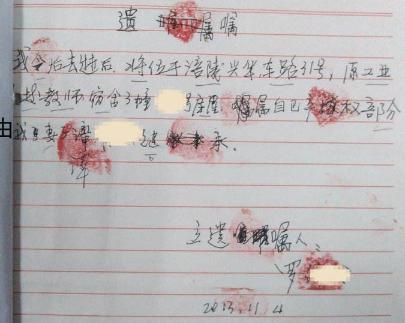 遗嘱
我今后去世后,将位于涪陵兴华东路31号,原工业
校教师宿舍3幢 房屋 嘱自己产权部分
由我 妻 继承。
立遗嘱人:
罗
2013.11.4